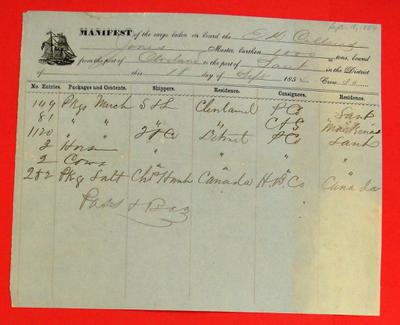 Sept 18, 1854
MANIFEST of the cargo laden on board the E K Collins
Jones Master, burthen 1000 tons, bound
from the port of Cleveland to the port of Saut in the District
of this 18 day of Sept 185 Crew 30
No. Entries. Packages and Contents. Shippers. Residence. Consignees. Residence.
149 Pkgs Merch S & L Cleveland P Co Saut
81 " " " " "
1120 " " Detroit P Co Saut
3 Horses " " "
2 Cows " " "
282 Pkg Salt Canada H. B. Co Canada
Pass & Bag